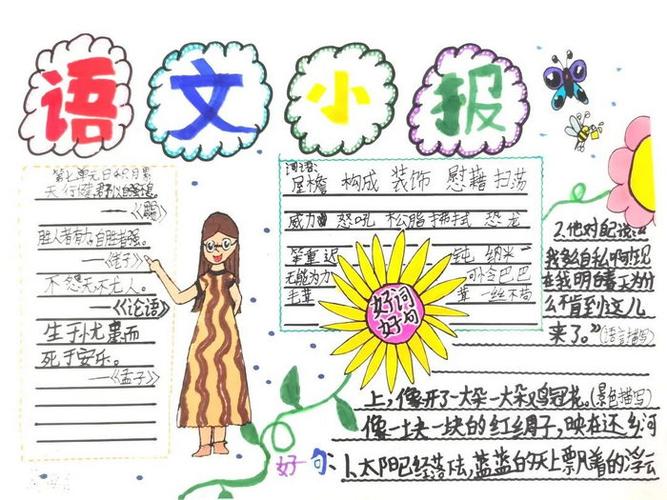 语文小报
第七单元日积月累
天行健,君子以自强不息
——《周易》
胜人者有力,自胜者强。
——《老子》
不怨天不尤人。
——《论语》
生于忧患而
死于安乐。
——《孟子》
词语:
屋檐 构成 装饰 慰藉 扫荡
威力 怒吼 松脂 拂拭 恐龙
笨重 迟钝 纳米
无能为力 可怜巴巴
毛茸茸 一丝不苟
好词
好句
2.他对自己说:“
我多么自私啊!现
在我明白春天为什
么不肯到这儿
来了。”(语言描写)
上,像开了一大朵一大朵鸡冠花。(景色描写)
像一块一块的红绸子,映在还乡河
好句:1、太阳已经落下去,蓝蓝的天上飘着的浮云